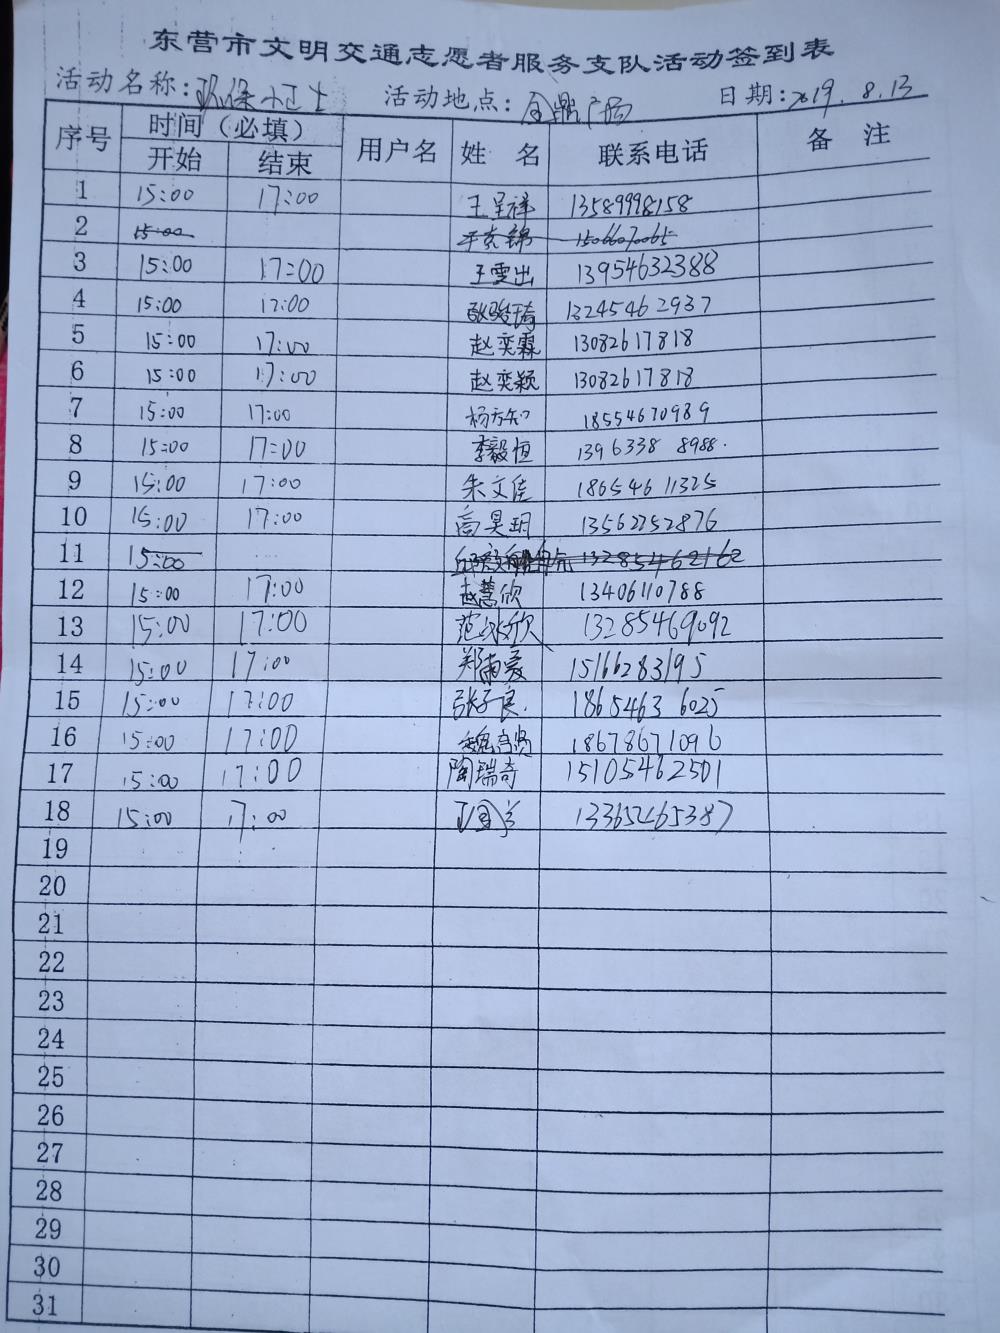 东营市文明交通志愿者服务支队活动签到表
活动名称:环保小卫士 活动地点:金鼎广场 日期:2019.8.13
序号 时间（必填） 用户名 姓名 联系电话 备注
开始 结束
1 15:00 17:00 王呈祥 13589998158
2 15:00 15066070065
3 15:00 17:00 王雲出 13954632388
4 15:00 17:00 张骏琦 13245462937
5 15:00 17:00 赵奕霖 13082617818
6 15:00 17:00 赵奕颖 13082617818
7 15:00 17:00 杨方知 18554670989
8 15:00 17:00 李毅恒 1396338 8988.
9 15:00 17:00 朱文佳 18654611325
10 15:00 17:00 高昊玥 13562252876
11 15:00 13285462162
12 15:00 17:00 赵慧欣 13406110788
13 15:00 17:00 范 欣 13285469092
14 15:00 17:00 郑雨 15166283195
15 15:00 17:00 张子良. 1865463 6025
16 15:00 17:00 魏 贤 18678671096
17 15:00 17:00 陶瑞奇 15105462501
18 15:00 17:00 13365465387
19
20
21
22
23
24
25
26
27
28
29
30
31